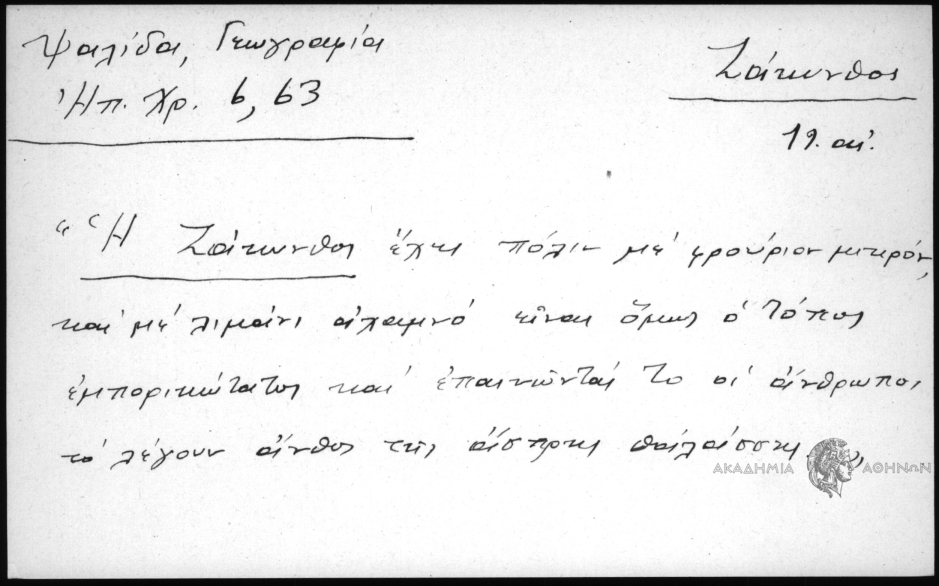 Ψαλίδα, Γεωγραφία
Ἠπ. Χρ. 6, 63
Ζάκυνθος
19. αἰ.
"Ἡ Ζάκυνθος ἔχει πόλιν μέ φρούριον μικρόν,
καί μέ λιμάνι ἀχαμνό εἶναι ὅμως ὁ τόπος
ἐμπορικώτατος καί ἐπαινῶντάς το οἱ ἄνθρωποι
τό λέγουν ἄνθος τῆς ἄσπρης θαλάσσης...,,
ΑΚΑΔΗΜΙΑ ΑΘΗΝΩΝ